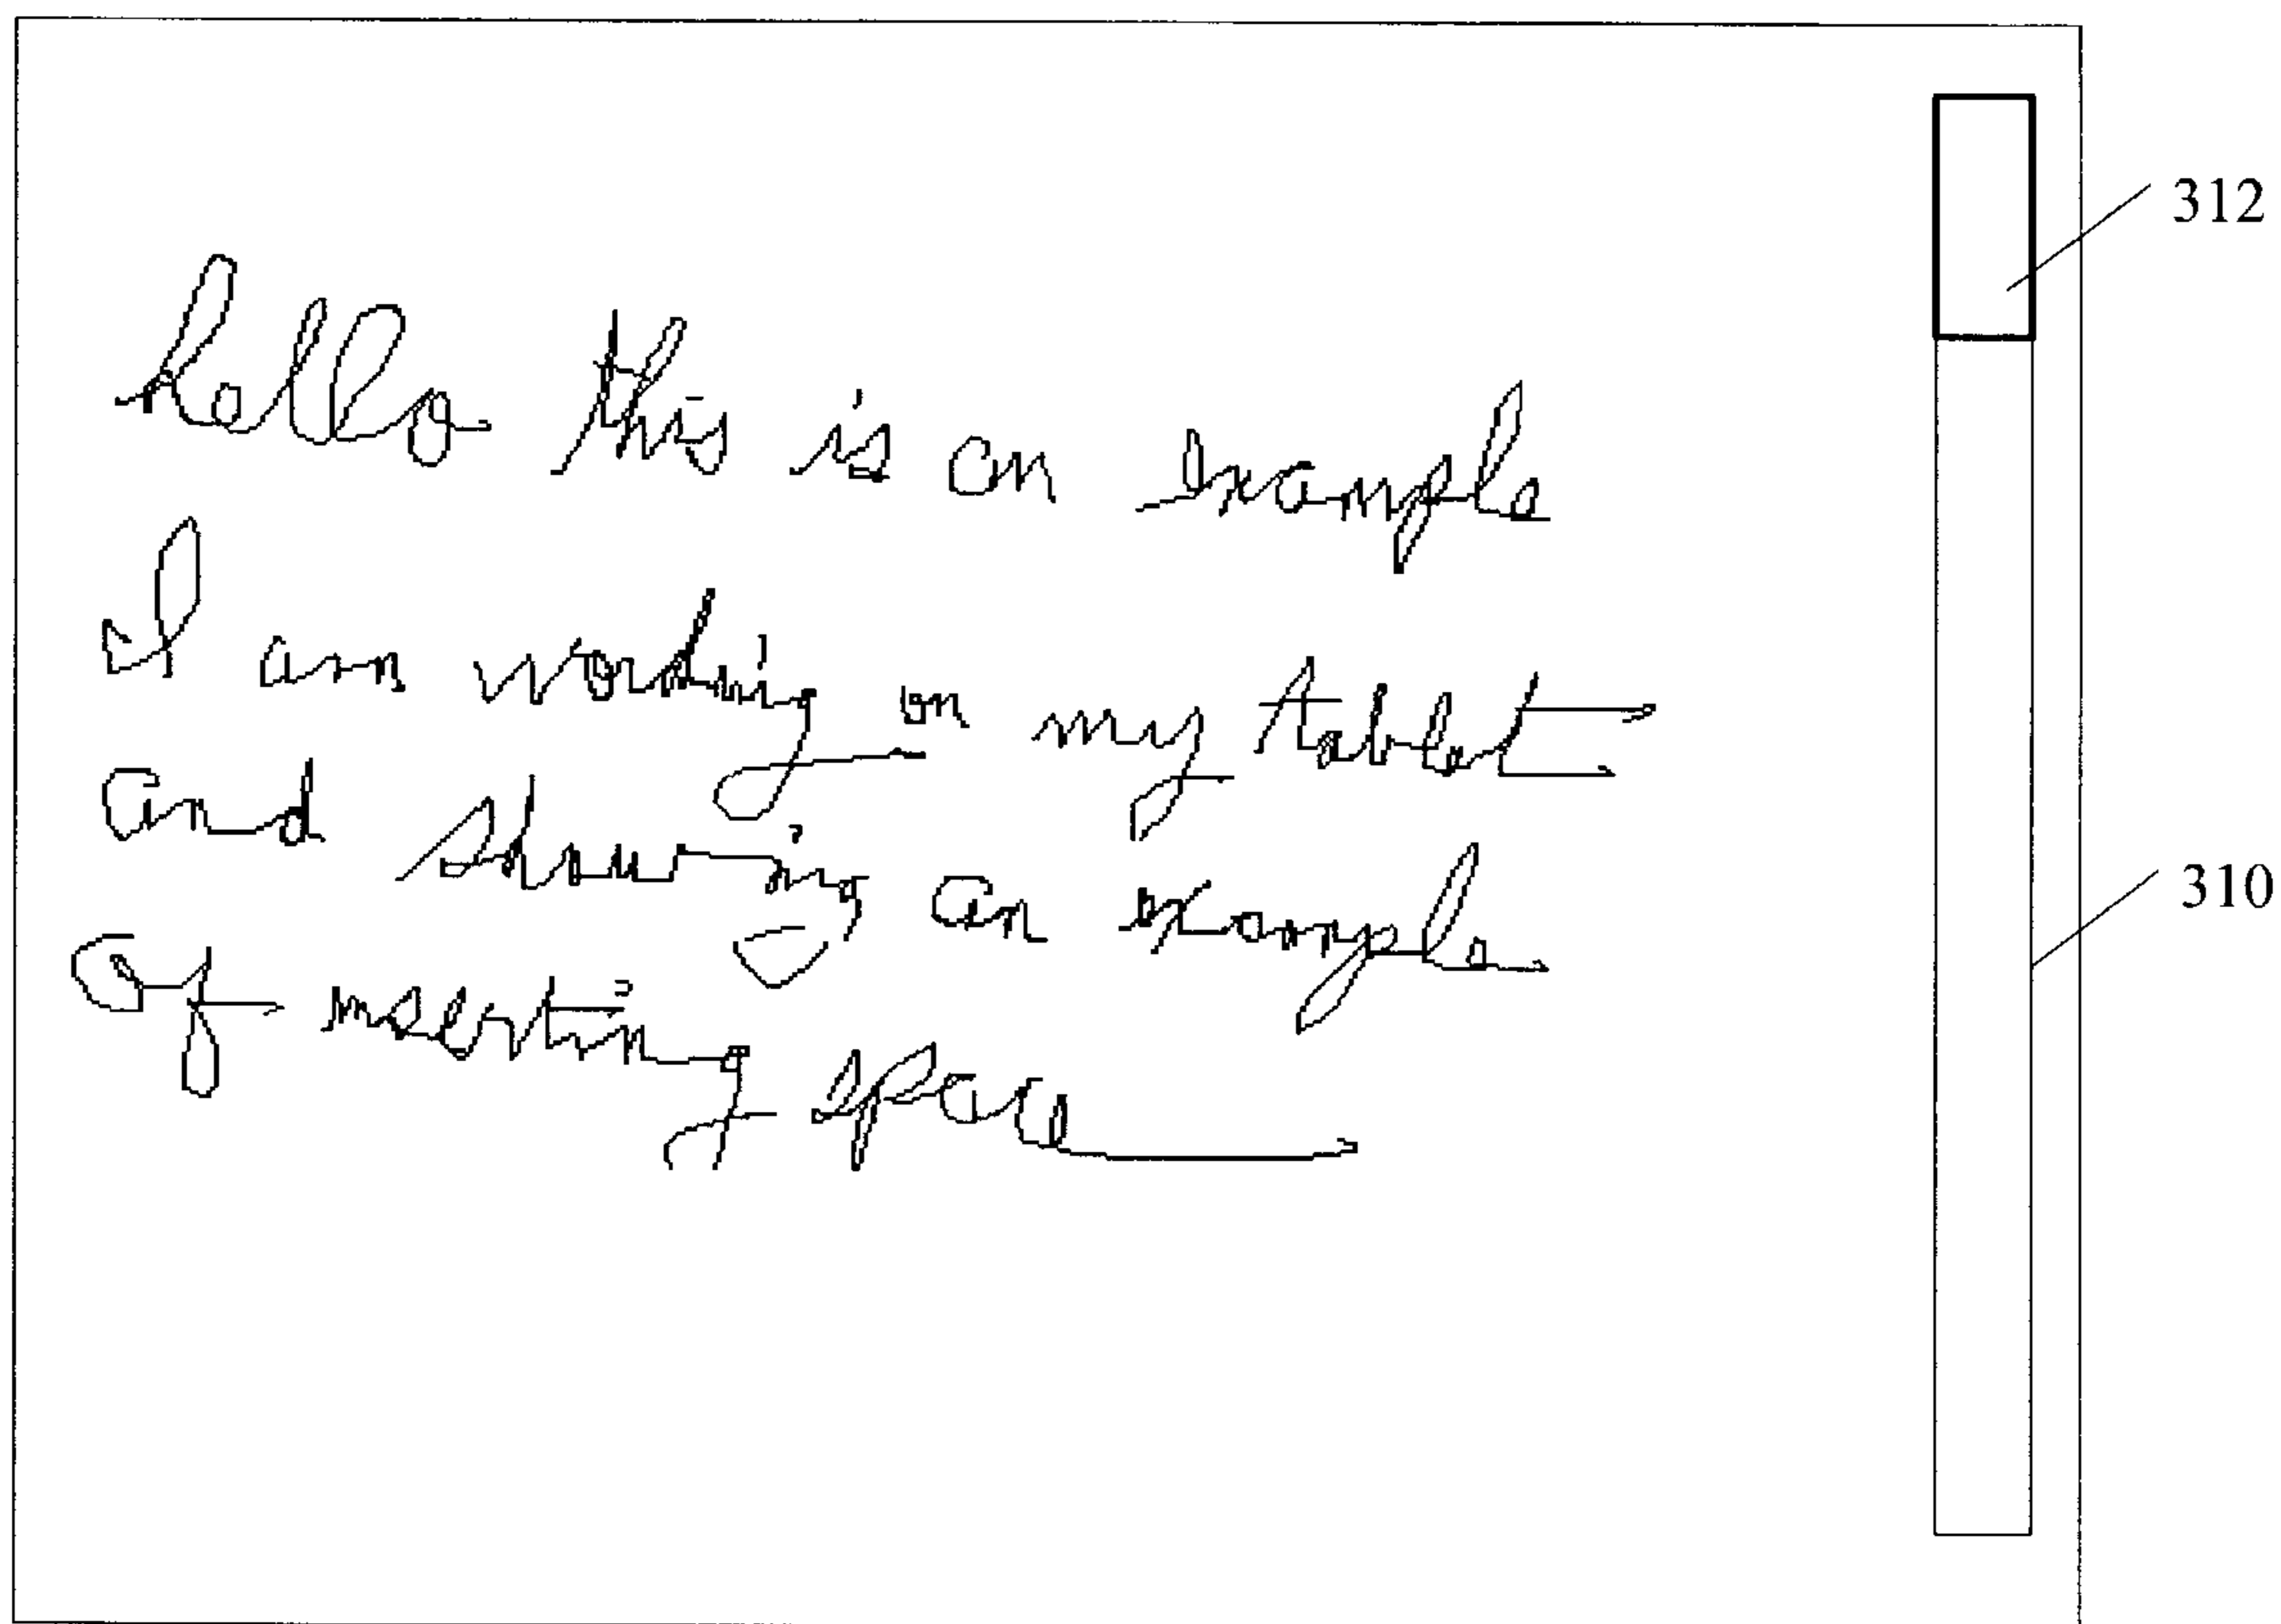 312
hello this is an example
I am working on my tablet
310
and showing an example
of inserting space